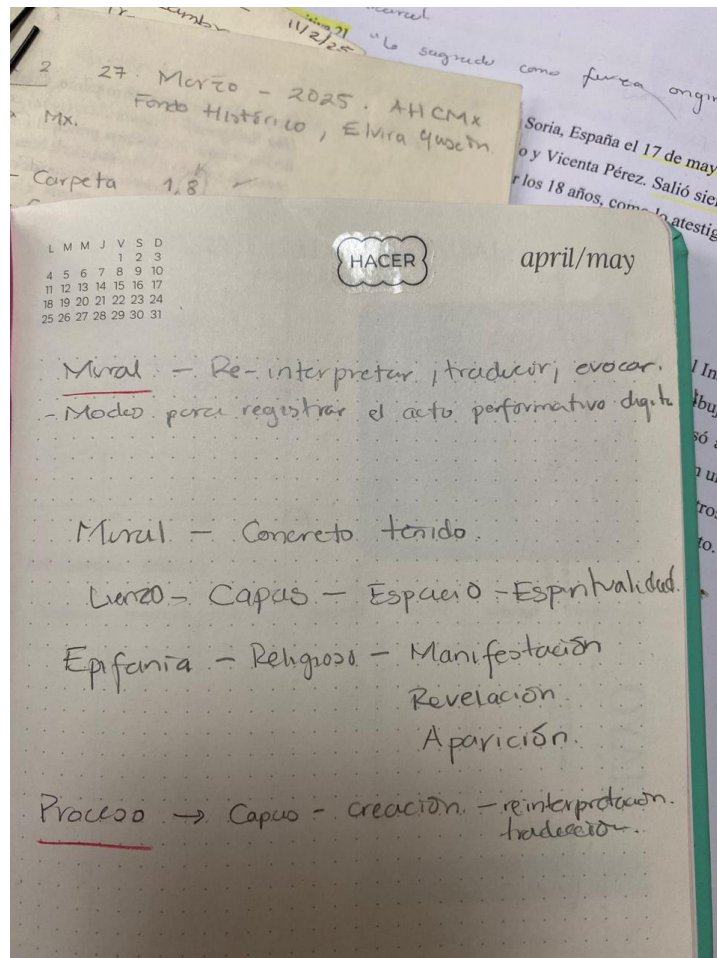 11/2/25
"Lo sagrado como fuerza
27. Marzo - 2025. AHCMX
Fondo Histórico, Elvira
Mx.
Carpeta 1,8
Soria, España el 17 de may
o y Vicenta Pérez. Salió sie
r los 18 años, como lo atestig
L M M J V S D
1 2 3
4 5 6 7 8 9 10
11 12 13 14 15 16 17
18 19 20 21 22 23 24
25 26 27 28 29 30 31
HACER
april/may
Mural - Re-interpretar, traducir, evocar.
- Modos para registrar el acto performativo digita
Mural - Concreto teñido.
Lienzo - Capas - Espacio - Espiritualidad.
Epifanía - Religioso - Manifestación
Revelación.
Aparición.
Proceso → Capas - creación - reinterpretación.
traducción.